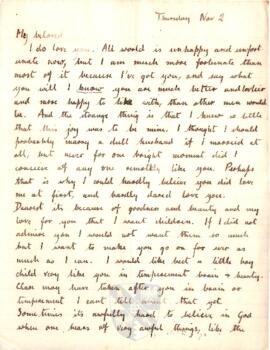 Thursday Nov 2
My beloved
I do love you. All world is unhappy and unfort
unate now, but I am much more fortunate than
most of it because I've got you, and say what
you will I know you are much better and lovelier
and more happy to live with, than other men would
be. And the strange thing is that I knew so little
that this joy was to be mine. I thought I should
probably marry a dull husband if I married at
all, but never for one bright moment did I
conceive of any one remotely like you. Perhaps
that is why I could hardly believe you did love
me at first, and hardly dared love you.
Dearest its because of goodness and beauty and my
love for you that I want children. If I did not
admire you I would not want them so much
but I want to make you go on for ever so
much as I can. I would like best a little boy
child very like you in temperament brain & beauty.
Clare may have taken after you in brain or
temperament I cant tell about that yet
Sometimes its awfully hard to believe in God
when one hears of very awful things, like the